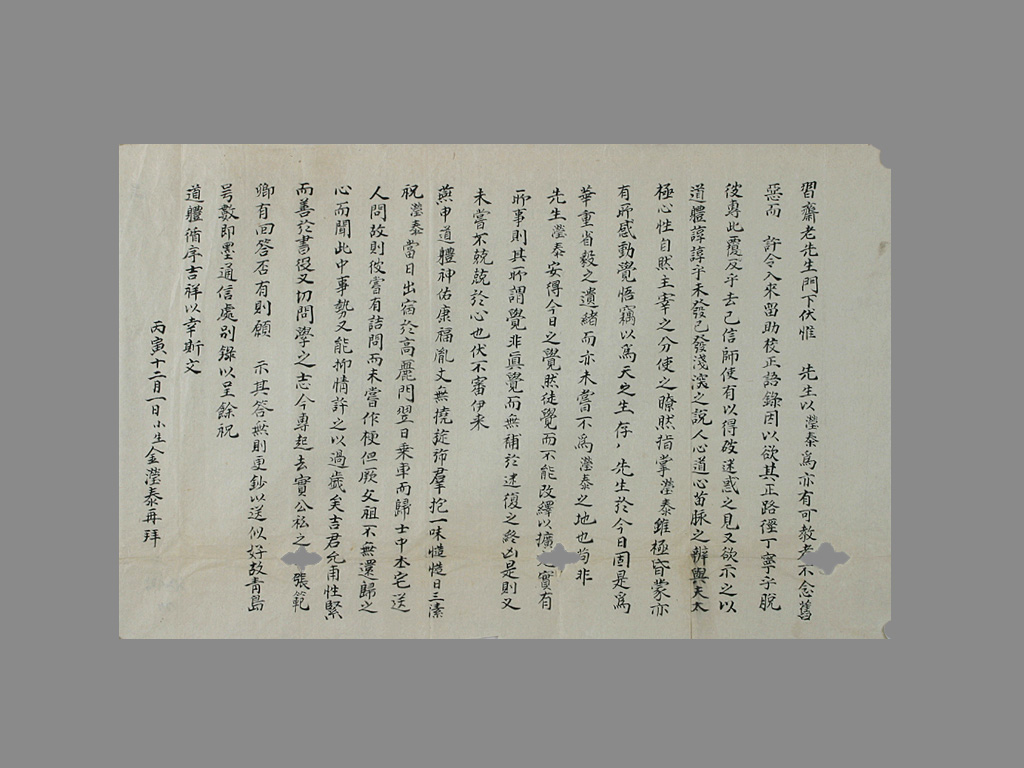 習齋老先生門下伏惟 先生以瀅泰爲亦有可教者不念舊
惡而 許令入來留助校正語錄因以欲其正路徑丁寧乎脫
彼專此覆反乎去己信師使有以得破迷惑之見又欲示之以
道體諄諄乎未發已發淺深之說人心道心苗脉之辨與夫太
極心性自然主宰之分使之瞭然指掌瀅泰雖極昏蒙亦
有所感動覺悟竊以爲天之生存 先生於今日固是爲
華重省毅之遺緖而亦未嘗不爲瀅泰之地也苟非
先生瀅泰安得今日之覺然徒覺而不能改繹以擴之實有
所事則其所謂覺非眞覺而無補於迷復之終凶是則又
未嘗不兢兢於心也伏不審伊来
燕申道體神佑康福胤丈無撓旋旆羣抱一味慥慥日三溸
祝瀅泰當日出宿於高麗門翌日乘車而歸士中本宅送
人問故則彼嘗有詰問而未嘗作梗但厥父祖不無還歸之
心而聞此中事勢又能抑情許之以過歲矣吉君允甫性緊
而善於書役又切問學之志今專起去實公私之 張範
卿有回答否有則願 示其答無則更鈔以送似好故靑島
号數即墨通信處別錄以呈餘祝
道體循序吉祥以幸斯文
丙寅十二月一日小生金瀅泰再拜